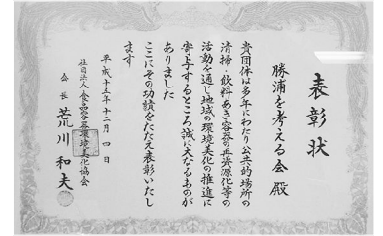 表彰状
勝浦を考える会殿
貴団体は多年にわたり公共的場所の
清掃・飲料あき容器の再資源化等の
活動を通じ地域の環境美化の推進に
寄与するところ誠に大なるものが
ありました
ここにその功績をたたえ表彰いたし
ます
平成十五年十二月四日
社団法人食品容器環境美化協会
会長 荒川和夫